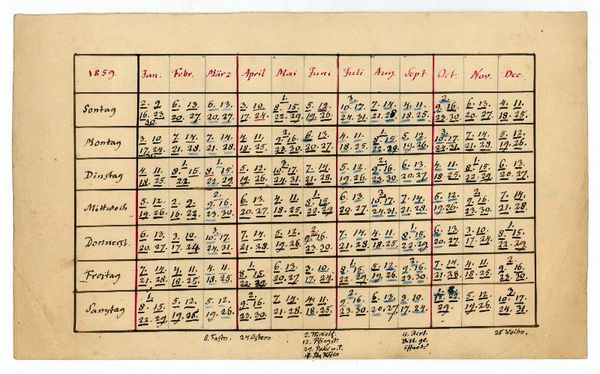 1859. Jan. Febr. März April Mai Juni Juli Aug. Sept Oct. Nov. Dec.
1. 3. 2.
Sontag 2. 9. 6. 13. 6. 13. 3. 10. 8. 15. 5. 12. 10. 17. 7. 14. 4. 11. 9. 16. 6. 13. 4. 11.
16. 23. 20. 27. 20. 27. 17. 24. 22. 29. 19. 26. 24. 31. 21. 28. 18. 25. 23. 30. 20. 27. 18. 25.
30.
2. 1. 3.
Montag 3. 10. 7. 14. 7. 14. 4. 11. 9. 16. 6. 13. 4. 11. 8. 15. 5. 12. 10. 17. 7. 14. 5. 12.
17. 24. 21. 28. 21. 28. 18. 25. 23. 30. 20. 27. 18. 25. 22. 29. 19. 26. 24. 31. 21. 28. 19. 26.
31.
1. 1. 3. 2. 1.
Dinstag 4. 11. 8. 15. 8. 15. 5. 12. 10. 17. 7. 14. 5. 12. 9. 16. 6. 13. 4. 11. 8. 15. 6. 13.
18. 25. 22. 22. 29. 19. 26. 24. 31. 21. 28. 19. 26. 23. 30. 20. 27. 18. 25. 22. 29. 20. 27.
2. 1. 3. 2.
Mittwoch 5. 12. 2. 9. 9. 16. 6. 13. 4. 11. 8. 15. 6. 13. 10. 17. 7. 14. 5. 12. 9. 16. 7. 14.
19. 26. 16. 23. 23. 30. 20. 27. 18. 25. 22. 29. 20. 27. 24. 31. 21. 28. 19. 26. 23. 30. 21. 28.
3. 2. 1. 1.
Donnerst. 6. 13. 3. 10. 10. 17. 7. 14. 5. 12. 9. 16. 7. 14. 4. 11. 8. 15. 6. 13. 3. 10. 8. 15.
20. 27. 17. 24. 24. 31. 21. 28. 19. 26. 23. 30. 21. 28. 18. 25. 22. 29. 20. 27. 17. 24. 22. 29.
1. 1. 2. 2.
Freitag 7. 14. 4. 11. 4. 11. 8. 15. 6. 13. 3. 10. 8. 15. 5. 12. 9. 16. 7. 14. 4. 11. 9. 16.
21. 28. 18. 25. 18. 25. 22. 29. 20. 27. 17. 24. 22. 29. 19. 26. 23. 30. 21. 28. 18. 25. 23. 30.
1. 2. 2. 3.
Samstag 8. 15. 5. 12. 5. 12. 9. 16. 7. 14. 4. 11. 9. 16. 6. 13. 3. 10. 5. 12. 10. 17.
22. 29. 19. 26. 19. 26. 23. 30. 21. 28. 18. 25. 23. 30. 20. 27. 17. 24. 22. 29. 19. 26. 24. 31.
8. Fastn. 24 Ostern 25 Weihn.
12. Pfingst